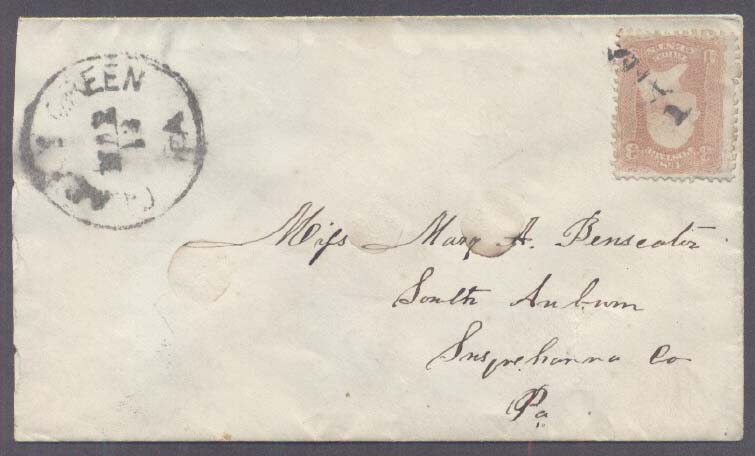 GREEN
MAR
13
PA
PAID
Miss Mary A. Benscoter
South Auburn
Susquehanna Co
Pa